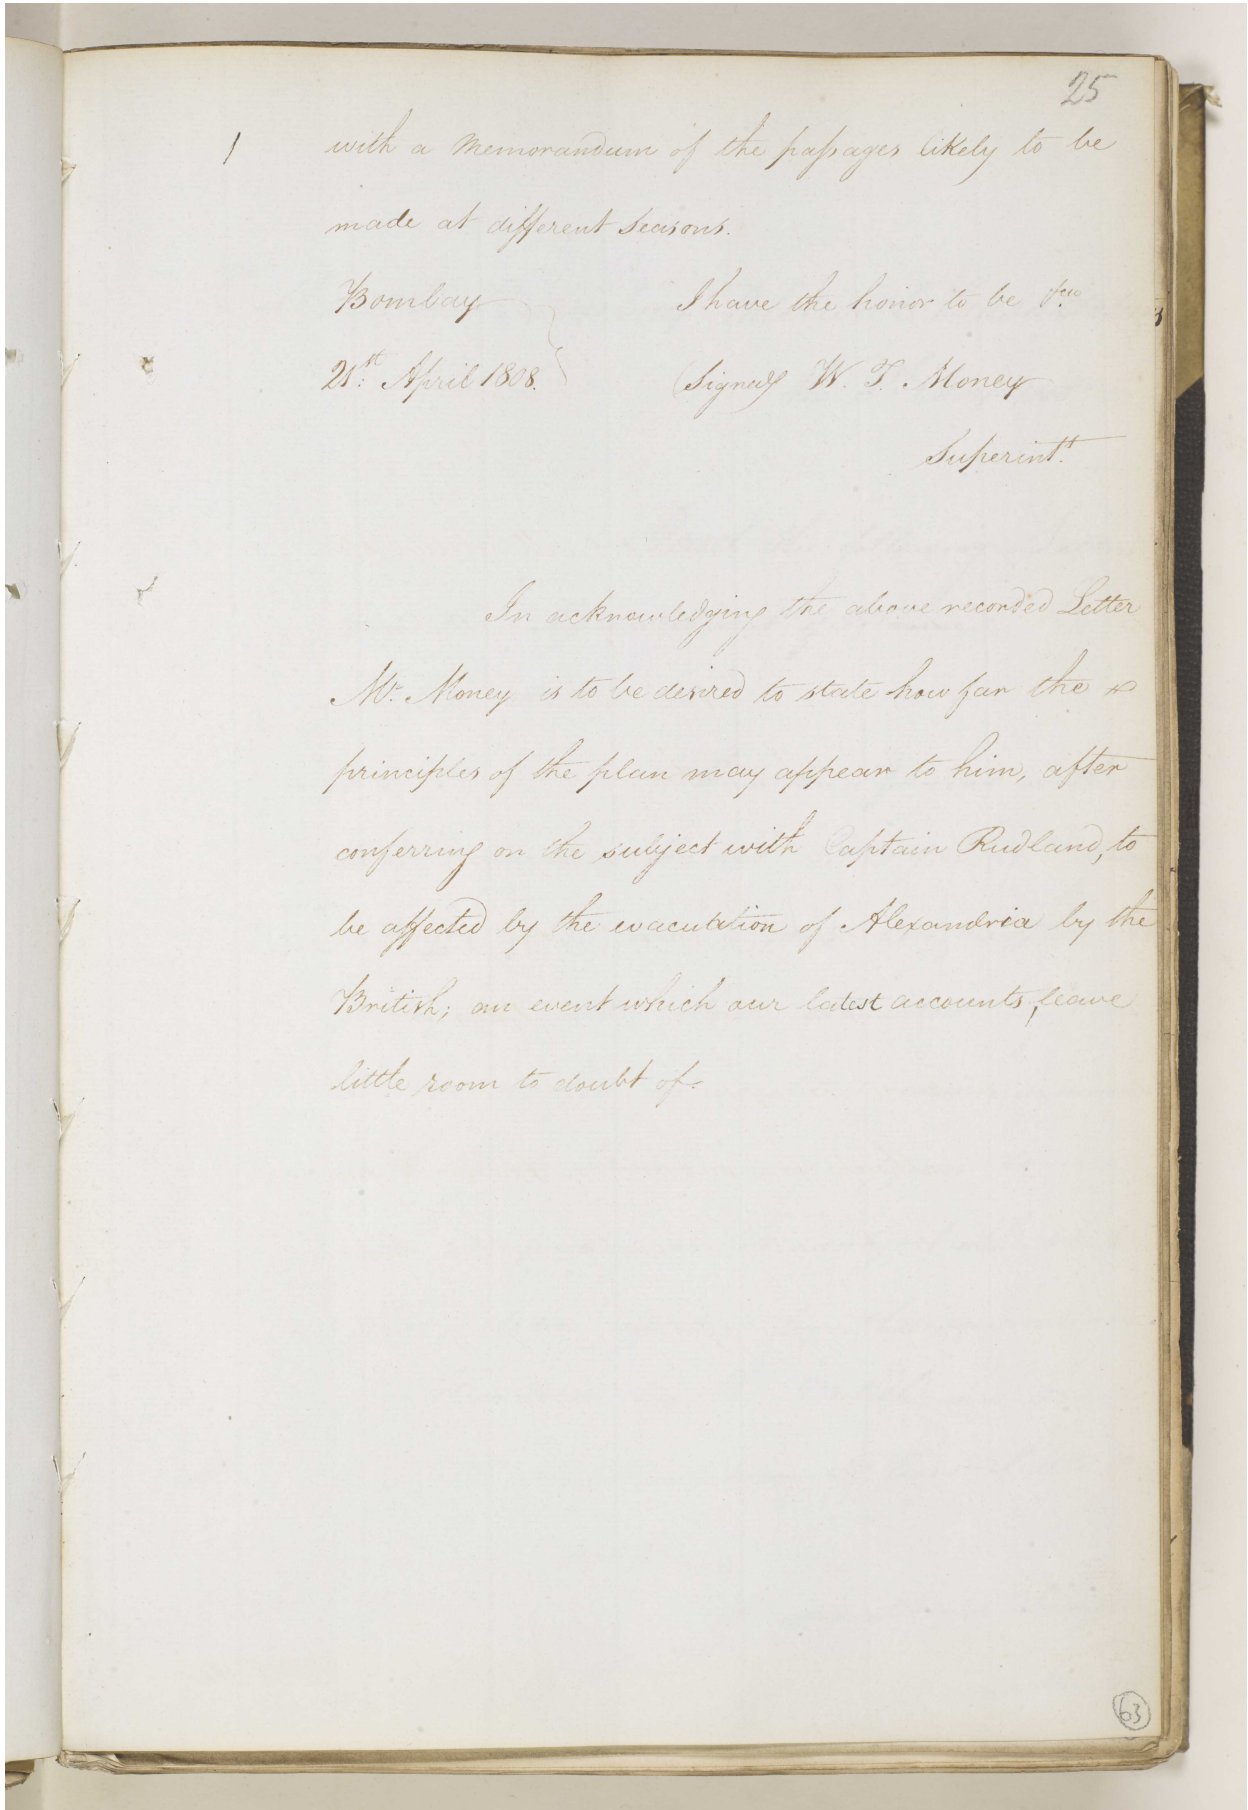 25
with a Memorandum of the paſsages likely to be
made at different Seasons.
Bombay I have the honor to be &ca
21st. April 1808. (Signed) W. T. Money
Superintt.
In acknowledging the above recorded Letter
Mr. Money is to be desired to state how far the
principles of the plan may appear to him, after
conferring on the subject with Captain Rudland, to
be affected by the evacutation of Alexandria by the
British; an event which our latest accounts, leave
little room to doubt of.
63